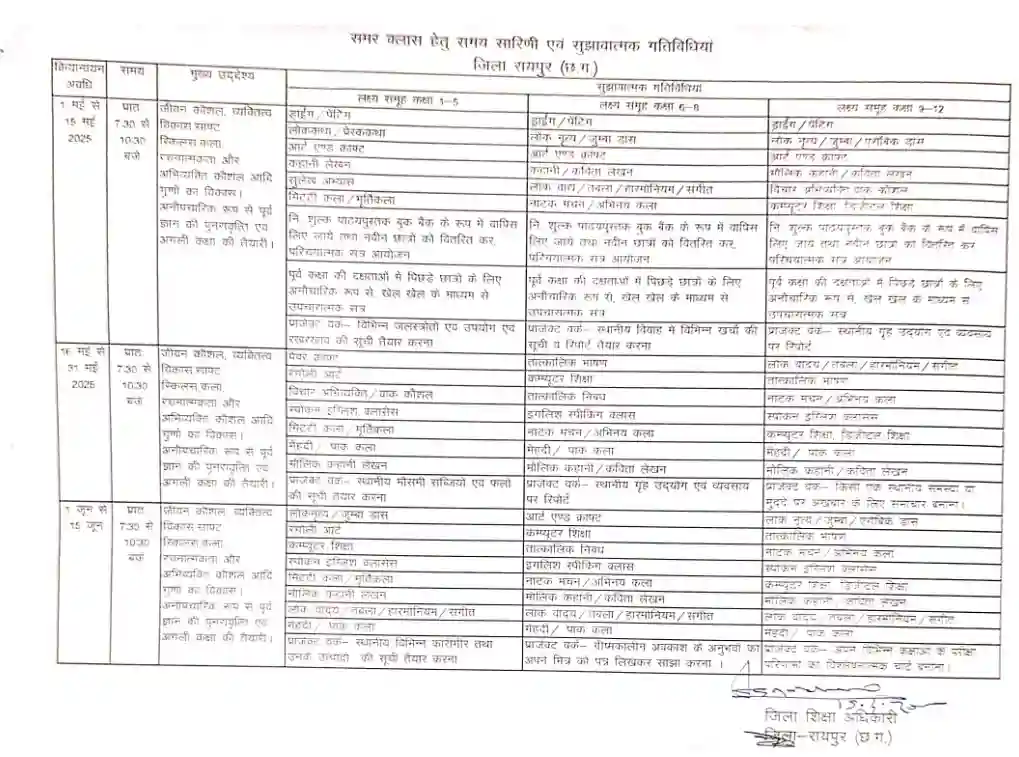 समर क्लास हेतु समय सारिणी एवं सुझावात्मक गतिविधियां
जिला रायपुर (छ.ग.)
क्रियान्वयन अवधि
समय
मुख्य उद्देश्य
सुझावात्मक गतिविधियां
लक्ष्य समूह कक्षा 1-5
लक्ष्य समूह कक्षा 6-8
लक्ष्य समूह कक्षा 9-12
1 मई से
15 मई
2025
प्रातः
7:30 से
10:30
बजे
जीवन कौशल, व्यक्तित्व
विकास साफ्ट
स्किलस कला
रचनात्मकता और
अभिव्यक्ति कौशल आदि
गुणों का विकास।
अनौपचारिक रूप से पूर्व
ज्ञान की पुनरावृत्ति एवं
अगली कक्षा की तैयारी।
ड्राईंग / पेंटिंग
लोककथा / प्रेरककथा
आर्ट एण्ड क्राफ्ट
कहानी लेखन
सुलेख अभ्यास
मिटटी कला / मूर्तिकला
नि शुल्क पाठ्यपुस्तक बुक बैंक के रूप में वापिस
लिए जाये तथा नवीन छात्रों को वितरित कर,
परिचयात्मक सत्र आयोजन
पूर्व कक्षा की दक्षताओं में पिछड़े छात्रों के लिए
अनौचारिक रूप से, खेल खेल के माध्यम से
उपचारात्मक सत्र
प्राजेक्ट वर्क– विभिन्न जलस्त्रोतो एवं उपयोग एवं
रखरखाव की सूची तैयार करना
ड्राईंग / पेंटिंग
लोक नृत्य / जुम्बा डांस
आर्ट एण्ड क्राफ्ट
कहानी / कविता लेखन
लोक वाद्य / तबला / हारमोनियम / संगीत
नाटक मंचन / अभिनय कला
नि. शुल्क पाठ्यपुस्तक बुक बैंक के रूप में वापिस
लिए जाये तथा नवीन छात्रों को वितरित कर,
परिचयात्मक सत्र आयोजन
पूर्व कक्षा की दक्षताओं में पिछड़े छात्रों के लिए
अनौचारिक रूप से, खेल खेल के माध्यम से
उपचारात्मक सत्र
प्राजेक्ट वर्क– स्थानीय विवाह में विभिन्न खर्चो की
सूची व रिपोर्ट तैयार करना
ड्राईंग / पेंटिंग
लोक नृत्य / जुम्बा / एरोबिक डांस
आर्ट एण्ड क्राफ्ट
मौलिक कहानी / कविता लेखन
विचार अभिव्यक्ति वाक कौशल
कम्प्यूटर शिक्षा, डिजीटल शिक्षा
नि शुल्क पाठ्यपुस्तक बुक बैंक के रूप में वापिस
लिए जाये तथा नवीन छात्रों को वितरित कर
परिचयात्मक सत्र आयोजन
पूर्व कक्षा की दक्षताओं में पिछड़े छात्रों के लिए
अनौचारिक रूप में, खेल खेल के माध्यम से
उपचारात्मक सत्र
प्राजेक्ट वर्क– स्थानीय गृह उद्योग एवं व्यवसाय
पर रिपोर्ट
16 मई से
31 मई
2025
प्रातः
7:30 से
10:30
बजे
जीवन कौशल, व्यक्तित्व
विकास साफ्ट
स्किलस कला
रचनात्मकता और
अभिव्यक्ति कौशल आदि
गुणों का विकास।
अनौपचारिक रूप से पूर्व
ज्ञान की पुनरावृत्ति एवं
अगली कक्षा की तैयारी।
पेपर क्राफ्ट
रंगोली आर्ट
विचार अभिव्यक्ति / वाक कौशल
स्पोकन इंग्लिश क्लासेस
मिटटी कला / मूर्तिकला
मेंहदी / पाक कला
मौलिक कहानी लेखन
प्राजेक्ट वर्क– स्थानीय मौसमी सब्जियों एवं फलों
की सूची तैयार करना
तात्कालिक भाषण
कम्प्यूटर शिक्षा
तात्कालिक निबंध
इंगलिश स्पीकिंग क्लास
नाटक मंचन / अभिनय कला
मेंहदी / पाक कला
मौलिक कहानी / कविता लेखन
प्राजेक्ट वर्क– स्थानीय गृह उद्योग एवं व्यवसाय
पर रिपोर्ट
लोक वाद्य / तबला / हारमोनियम / संगीत
तात्कालिक भाषण
नाटक मंचन / अभिनय कला
स्पोकन इंग्लिश क्लासेस
कम्प्यूटर शिक्षा, डिजीटल शिक्षा
मेंहदी / पाक कला
मौलिक कहानी / कविता लेखन
प्राजेक्ट वर्क– किसी एक स्थानीय समस्या या
मुददे पर अखबार के लिए समाचार बनाना।
1 जून से
15 जून
प्रातः
7:30 से
10:30
बजे
जीवन कौशल, व्यक्तित्व
विकास साफ्ट
स्किलस कला
रचनात्मकता और
अभिव्यक्ति कौशल आदि
गुणों का विकास।
अनौपचारिक रूप से पूर्व
ज्ञान की पुनरावृत्ति एवं
अगली कक्षा की तैयारी।
लोकनृत्य / जुम्बा डांस
रंगोली आर्ट
कम्प्यूटर शिक्षा
स्पोकन इंग्लिश क्लासेस
मिटटी कला / मूर्तिकला
मौलिक कहानी लेखन
लोक वाद्य / तबला / हारमोनियम / संगीत
मेंहदी / पाक कला
प्राजेक्ट वर्क– स्थानीय विभिन्न कारीगीर तथा
उनके उत्पादो की सूची तैयार करना
आर्ट एण्ड क्राफ्ट
कम्प्यूटर शिक्षा
तात्कालिक निबंध
इंगलिश स्पीकिंग क्लास
नाटक मंचन / अभिनय कला
मौलिक कहानी / कविता लेखन
लोक वाद्य / तबला / हारमोनियम / संगीत
मेंहदी / पाक कला
प्राजेक्ट वर्क– ग्रीष्मकालीन अवकाश के अनुभवों का
अपने मित्र को पत्र लिखकर साझा करना ।
लोक नृत्य / जुम्बा / एरोबिक डांस
तात्कालिक भाषण
नाटक मंचन / अभिनय कला
स्पोकन इंग्लिश क्लासेस
कम्प्यूटर शिक्षा, डिजीटल शिक्षा
मौलिक कहानी / कविता लेखन
लोक वाद्य / तबला / हारमोनियम / संगीत
मेंहदी / पाक कला
प्राजेक्ट वर्क– अपने विभिन्न कक्षाओं के परीक्षा
परिणामों का विश्लेषनात्मक चार्ट बनाना।
जिला शिक्षा अधिकारी
जिला–रायपुर (छ.ग.)